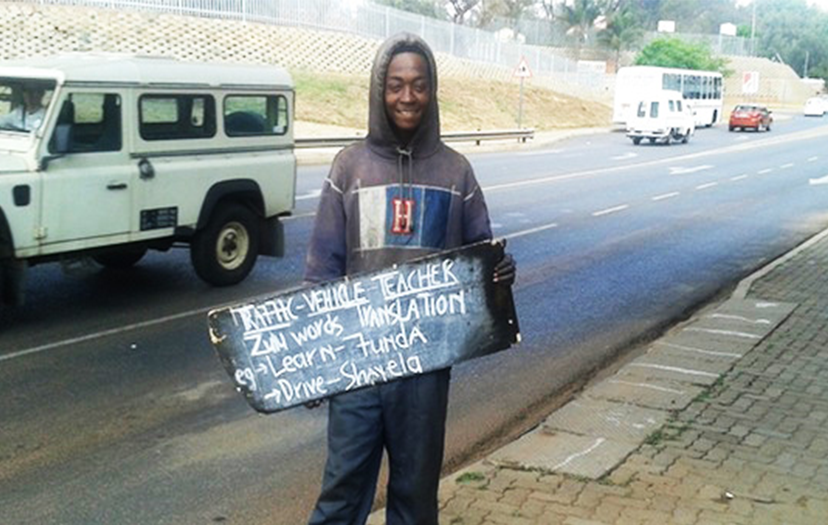 TRAFFIC-VEHICLE-TEACHER
Zulu words TRANSLATION
eg → Learn - Funda
→ Drive - Shayela
H